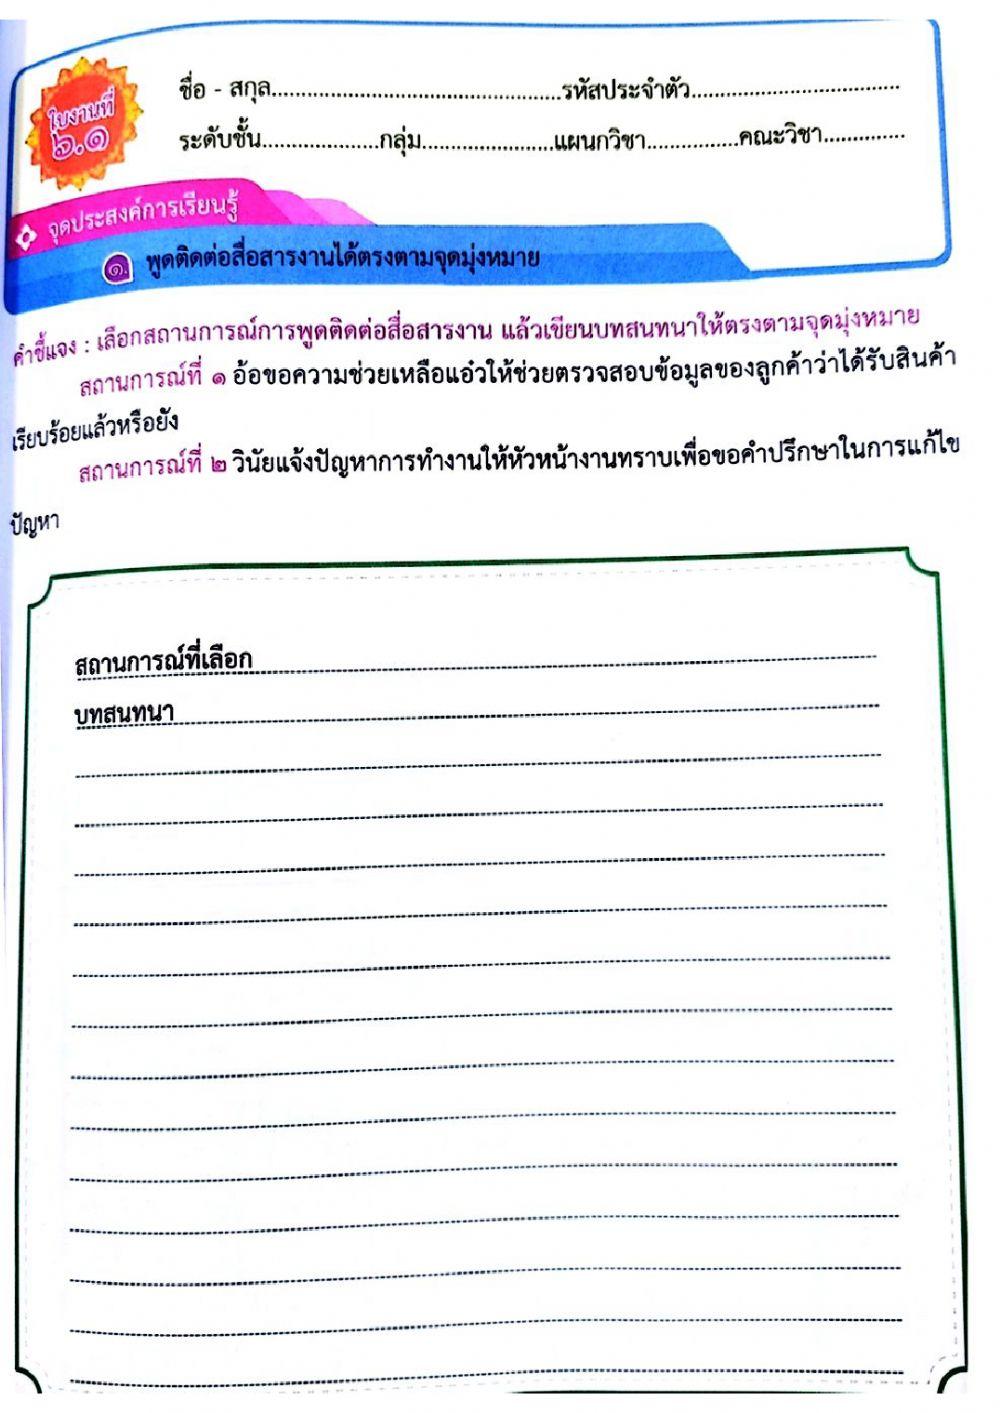 ใบงานที่
๖.๑
ชื่อ - สกุล..........................................รหัสประจำตัว..................................
ระดับชั้น....................กลุ่ม......................แผนกวิชา................คณะวิชา..............
จุดประสงค์การเรียนรู้
๑. พูดติดต่อสื่อสารงานได้ตรงตามจุดมุ่งหมาย
คำชี้แจง : เลือกสถานการณ์การพูดติดต่อสื่อสารงาน แล้วเขียนบทสนทนาให้ตรงตามจุดมุ่งหมาย
สถานการณ์ที่ ๑ อ้อขอความช่วยเหลือแอ๋วให้ช่วยตรวจสอบข้อมูลของลูกค้าว่าได้รับสินค้า
เรียบร้อยแล้วหรือยัง
สถานการณ์ที่ ๒ วินัยแจ้งปัญหาการทำงานให้หัวหน้างานทราบเพื่อขอคำปรึกษาในการแก้ไข
ปัญหา
สถานการณ์ที่เลือก
บทสนทนา